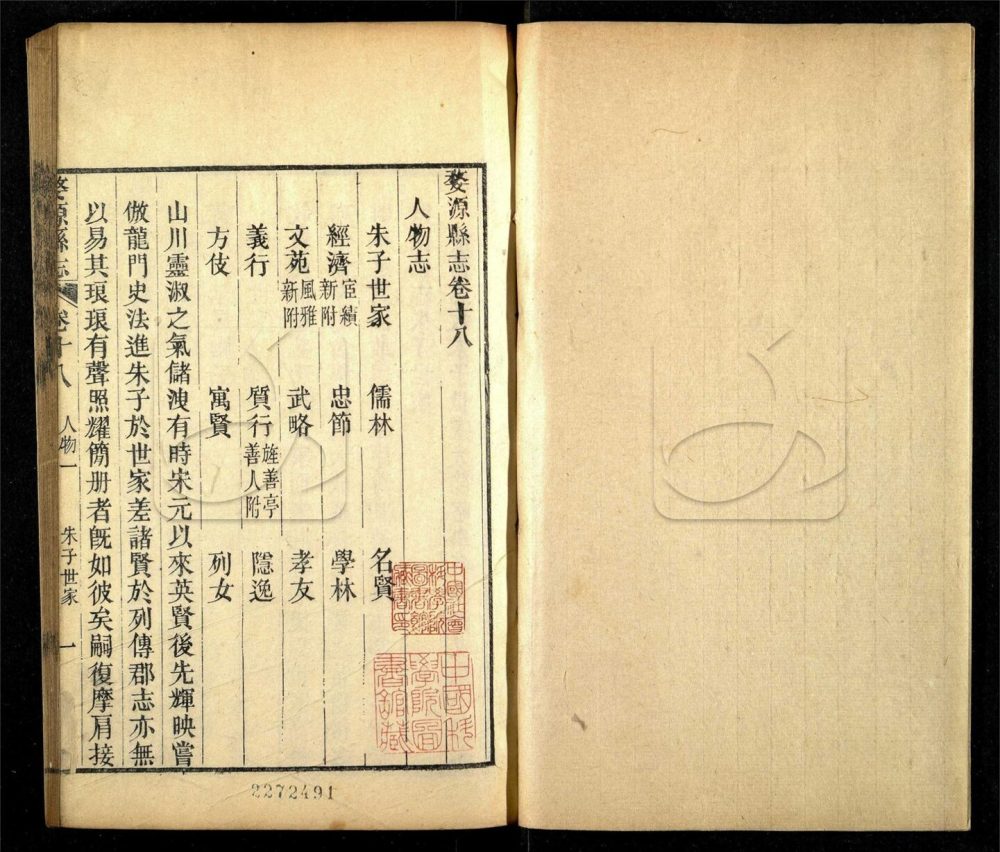 婺源縣志卷十八
人物志
朱子世家 儒林 名賢
經濟 宦績新附 忠節 學林
文苑 風雅新附 武略 孝友
義行 質行 旌善亭善人附 隱逸
方伎 寓賢 列女
山川靈淑之氣儲洩有時宋元以來英賢後先輝映嘗
倣龍門史法進朱子於世家差諸賢於列傳郡志亦無
以易其琅琅有聲照耀簡册者旣如彼矣嗣復摩肩接
婺源縣志 卷十八 人物一 朱子世家 一
中國社會科學院圖書館藏書印
中國科學院圖書館藏
2272491